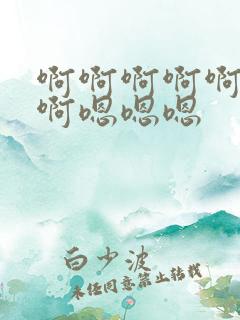 啊啊啊啊啊
啊嗯嗯嗯
白少波
未经同意禁止转载